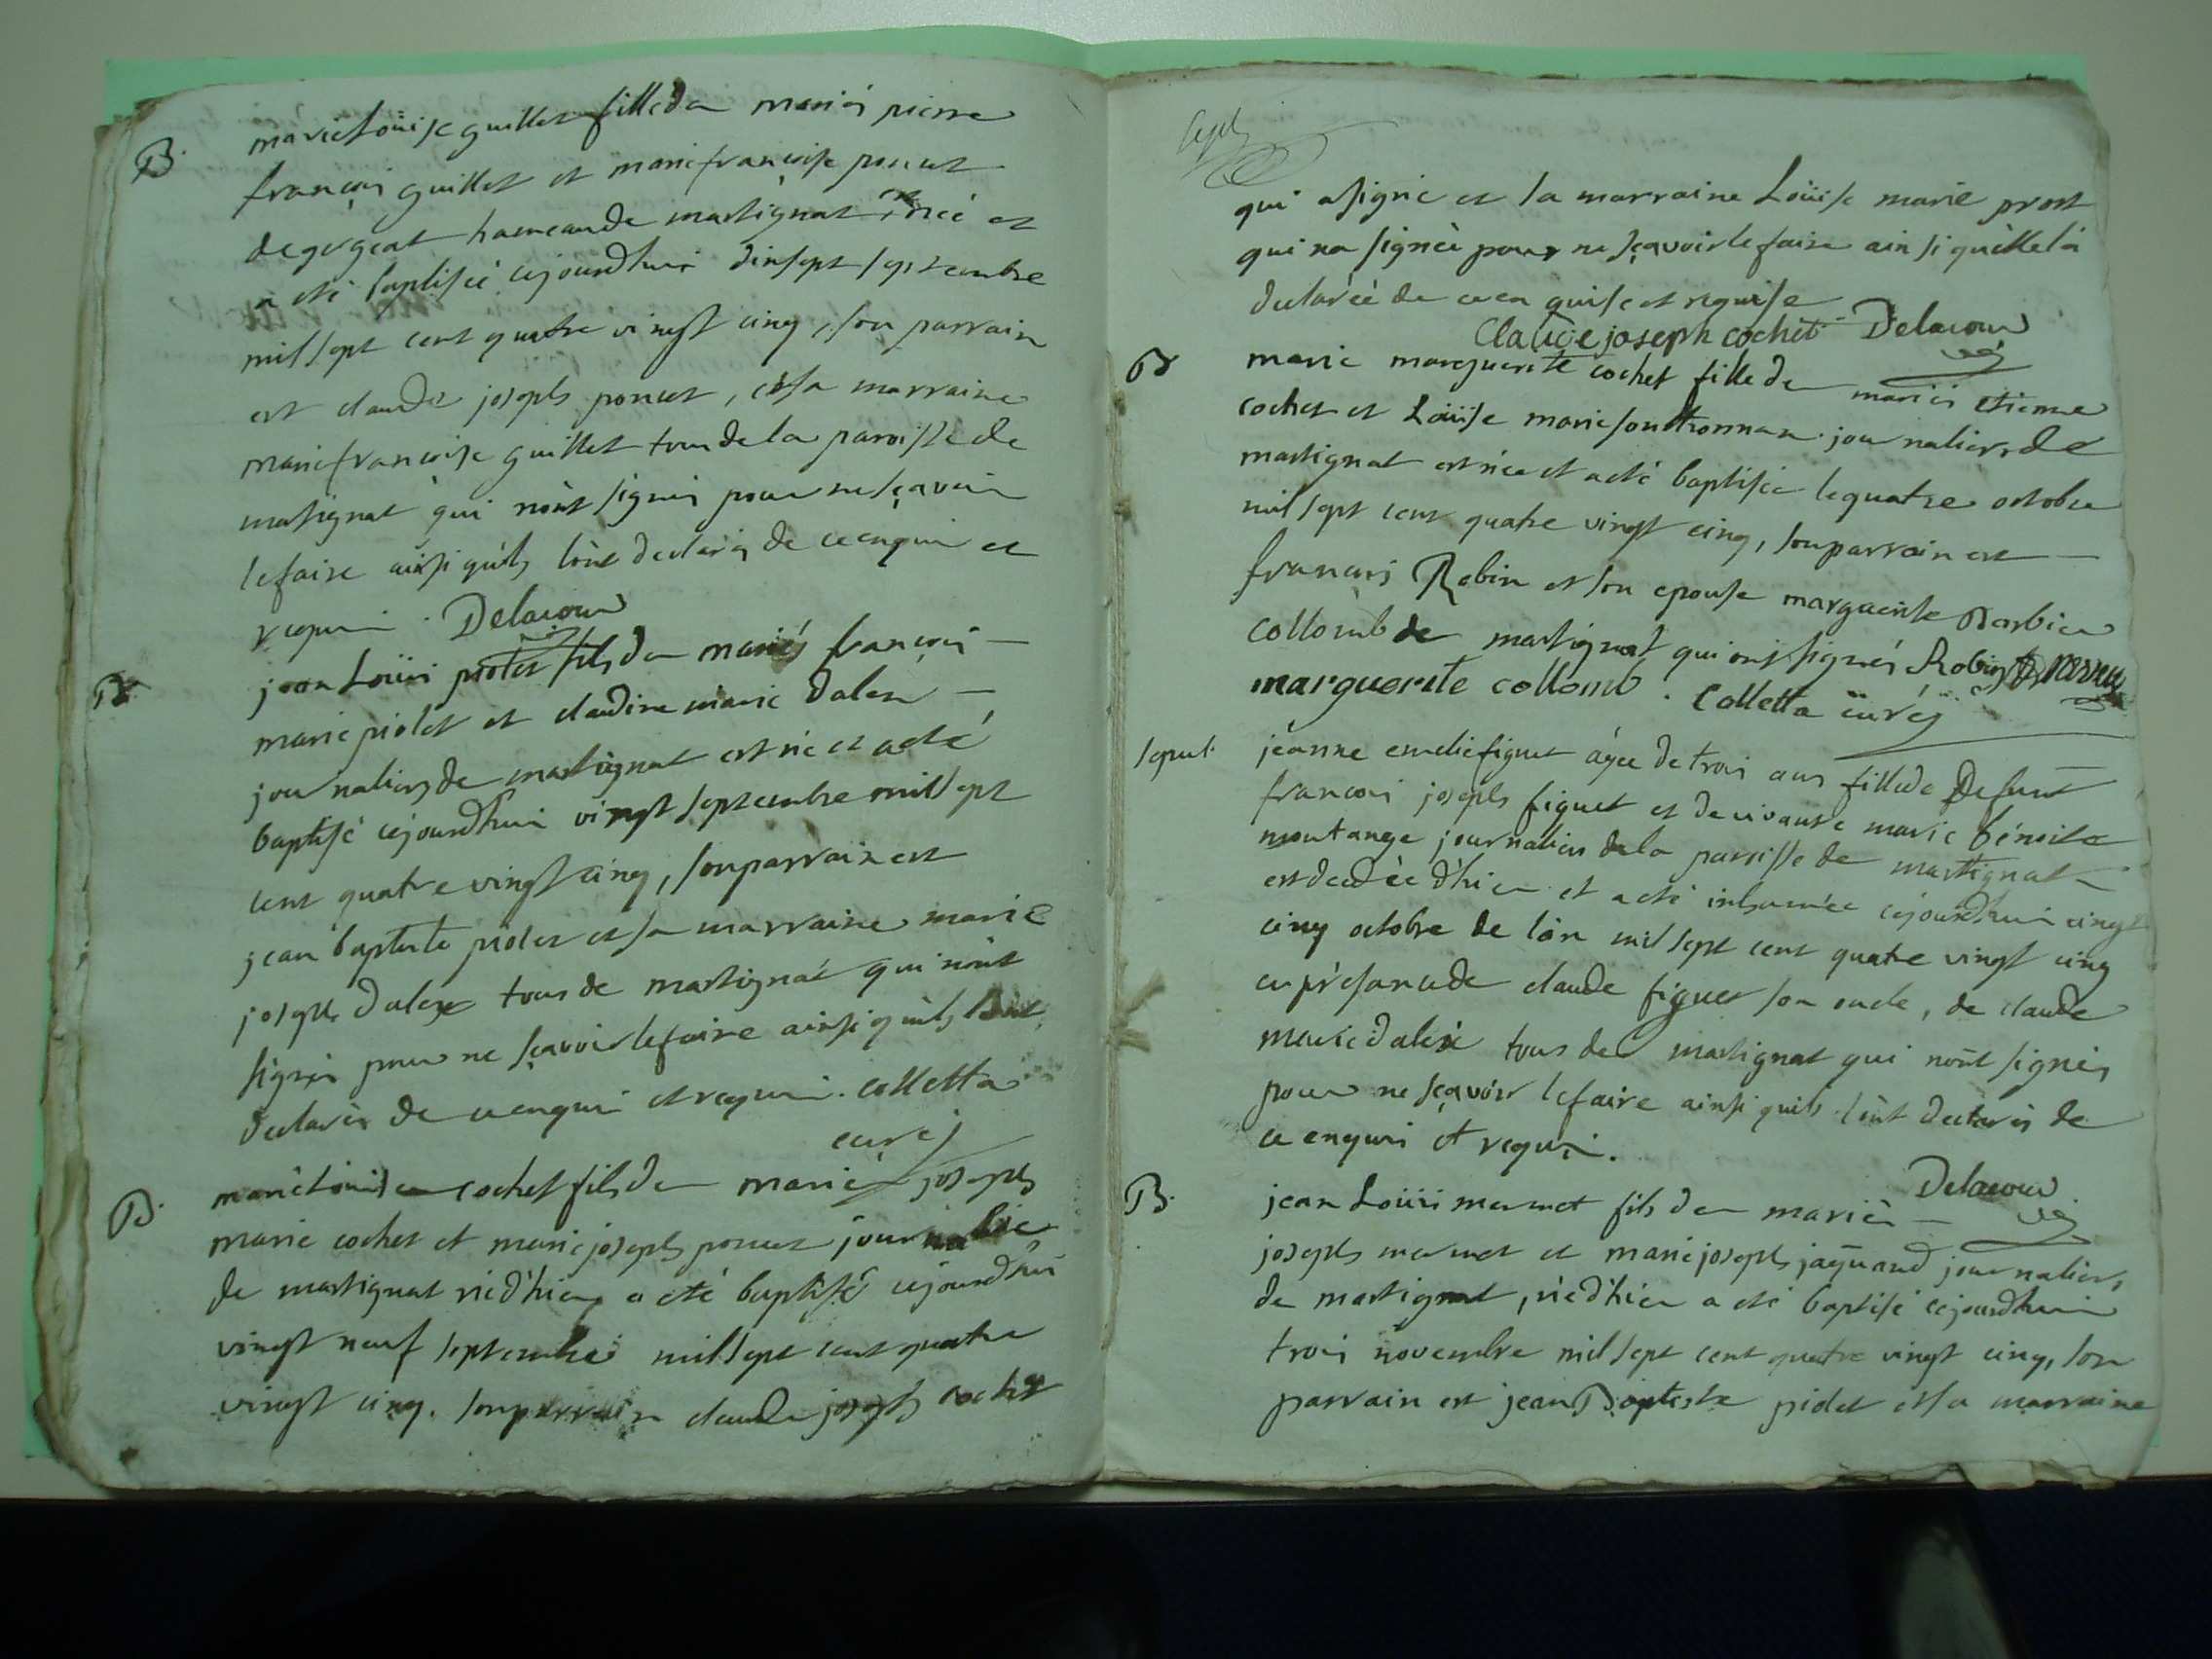 B. marie Loüise guillet fille de mariés pierre
françois guillet et marie françoise poncet
de gevgeat hameau de martignat est née et
a été baptisée cejourdhui dixsept septembre
mil sept cent quatre vingt cinq, son parrain
est claude joseph poncet, et sa marraine
marie francoise guillet tous de la paroisse de
martignat qui n'ont signés pour ne sçavoir
le faire ainsi qu'ils l'ont declarés de ce enquis et
requis. Delacour
B. jean Loüis piolet fils de mariés françois
marie piolet et claudine marie dalex
journaliers de martignat est né et a eté
baptisé cejourdhui vingt septembre mil sept
cent quatre vingt cinq, son parrain est
jean baptiste piolet et sa marraine marie
joseph dalex tous de martignat qui n'ont
signés pour ne sçavoir le faire ainsi qu'ils l'ont
declarés de ce enquis et requis. Colletta
curé
B. marie Louis cochet fils de mariés joseph
marie cochet et marie joseph poncet journalie
de martignat né d'hier a eté baptisé cejourdhui
vingt neuf septembre mil sept cent quatre
vingt cinq. son parrain claude joseph cochet
Sept
qui a signé et la marraine Loüise marie prost
qui na signée pour ne sçavoir le faire ainsi qu'elle la
declarée de ce en quise et requise
Claude joseph cochet Delacour
B marie marguerite cochet fille de mariés etienne
cochet et Loüise marie sonthonnax journaliers de
martignat est née et a eté baptisée le quatre octobre
mil sept cent quatre vingt cinq, son parrain est
françois Robin et son epouse marguerite Barbier
collomb de martignat qui ont signés Robin
marguerite collomb. Colletta curé
sepul. jeanne emelie figuet âgée de trois ans fille de defunt
francois joseph figuet et de vivante marie bénoite
montange journaliers de la paroisse de martignat
est decedée d'hier et a eté inhumée cejourdhui vingt
cinq octobre de l'an mil sept cent quatre vingt cinq
en présence de claude figuet son oncle, de claude
marie dalex tous de martignat qui n'ont signés
pour ne sçavoir le faire ainsi quils l'ont declarés de
ce enquis et requis.
Delacour
B. jean Loüis mermet fils de mariés
joseph mermet et marie joseph jaquand journaliers
de martignat, né d'hier a eté baptisé cejourdhui
trois novembre mil sept cent quatre vingt cinq, son
parrain est jean Baptiste piolet et sa marraine